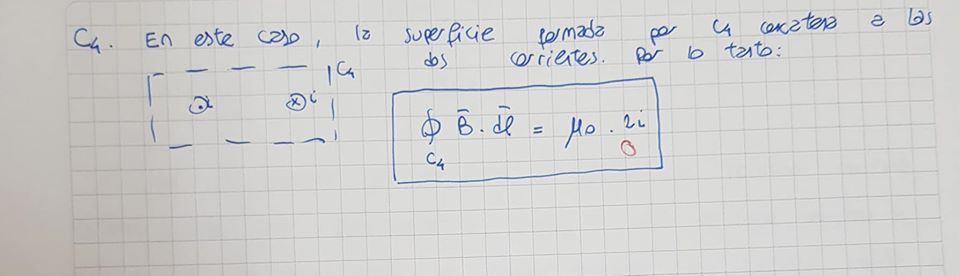 C4. En este caso, la superficie formada por C4 concatena a las
dos corrientes. Por lo tanto:
C4
i
i
∮ B̄ · dl̄ = μ0 · 2i
C4
0